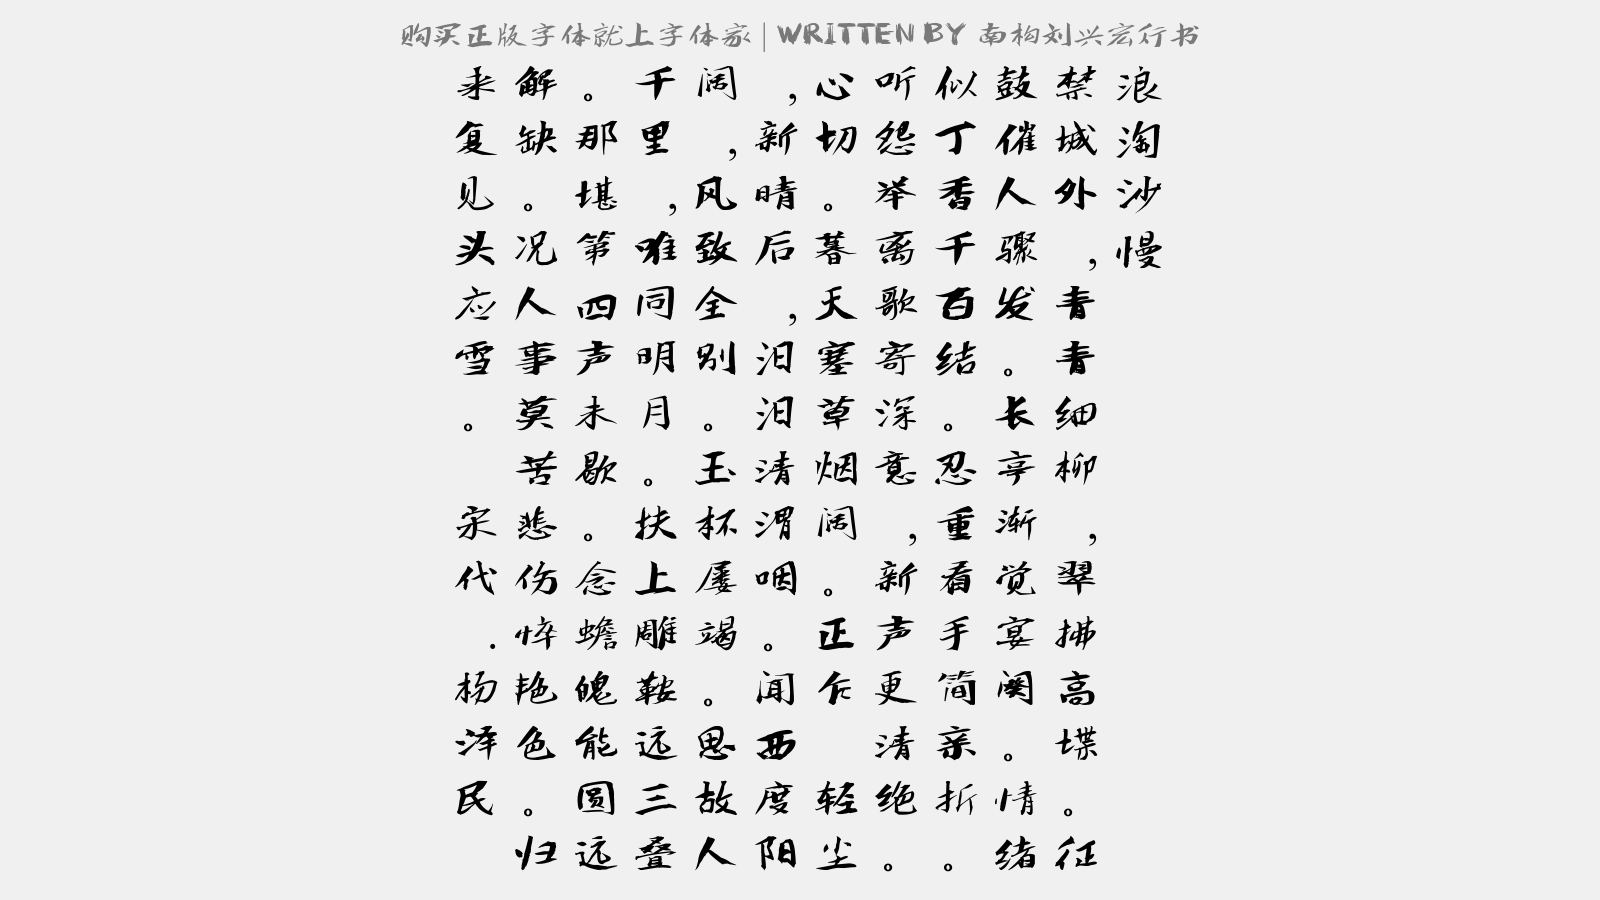 购买正版字体就上字体家 | WRITTEN BY 南构刘兴宏行书
浪淘沙慢
禁城外，青青细柳，翠拂高堞。征
鼓催人骤发。长亭渐觉宴阕。情绪
似丁香千百结。忍重看手简亲折。
听怨举离歌寄深意，新声更清绝。
心切。暮天塞草烟阔。正乍 轻尘
，新晴后，汩汩清渭咽。闻西度阳
阔，风致全别。玉杯屡竭。思故人
千里，唯同明月。扶上雕鞍远三叠
。那堪第四声未歇。念蟾魄能圆远
解缺。况人事莫苦悲伤悴艳色。归
来复见头应雪。
宋代.杨泽民